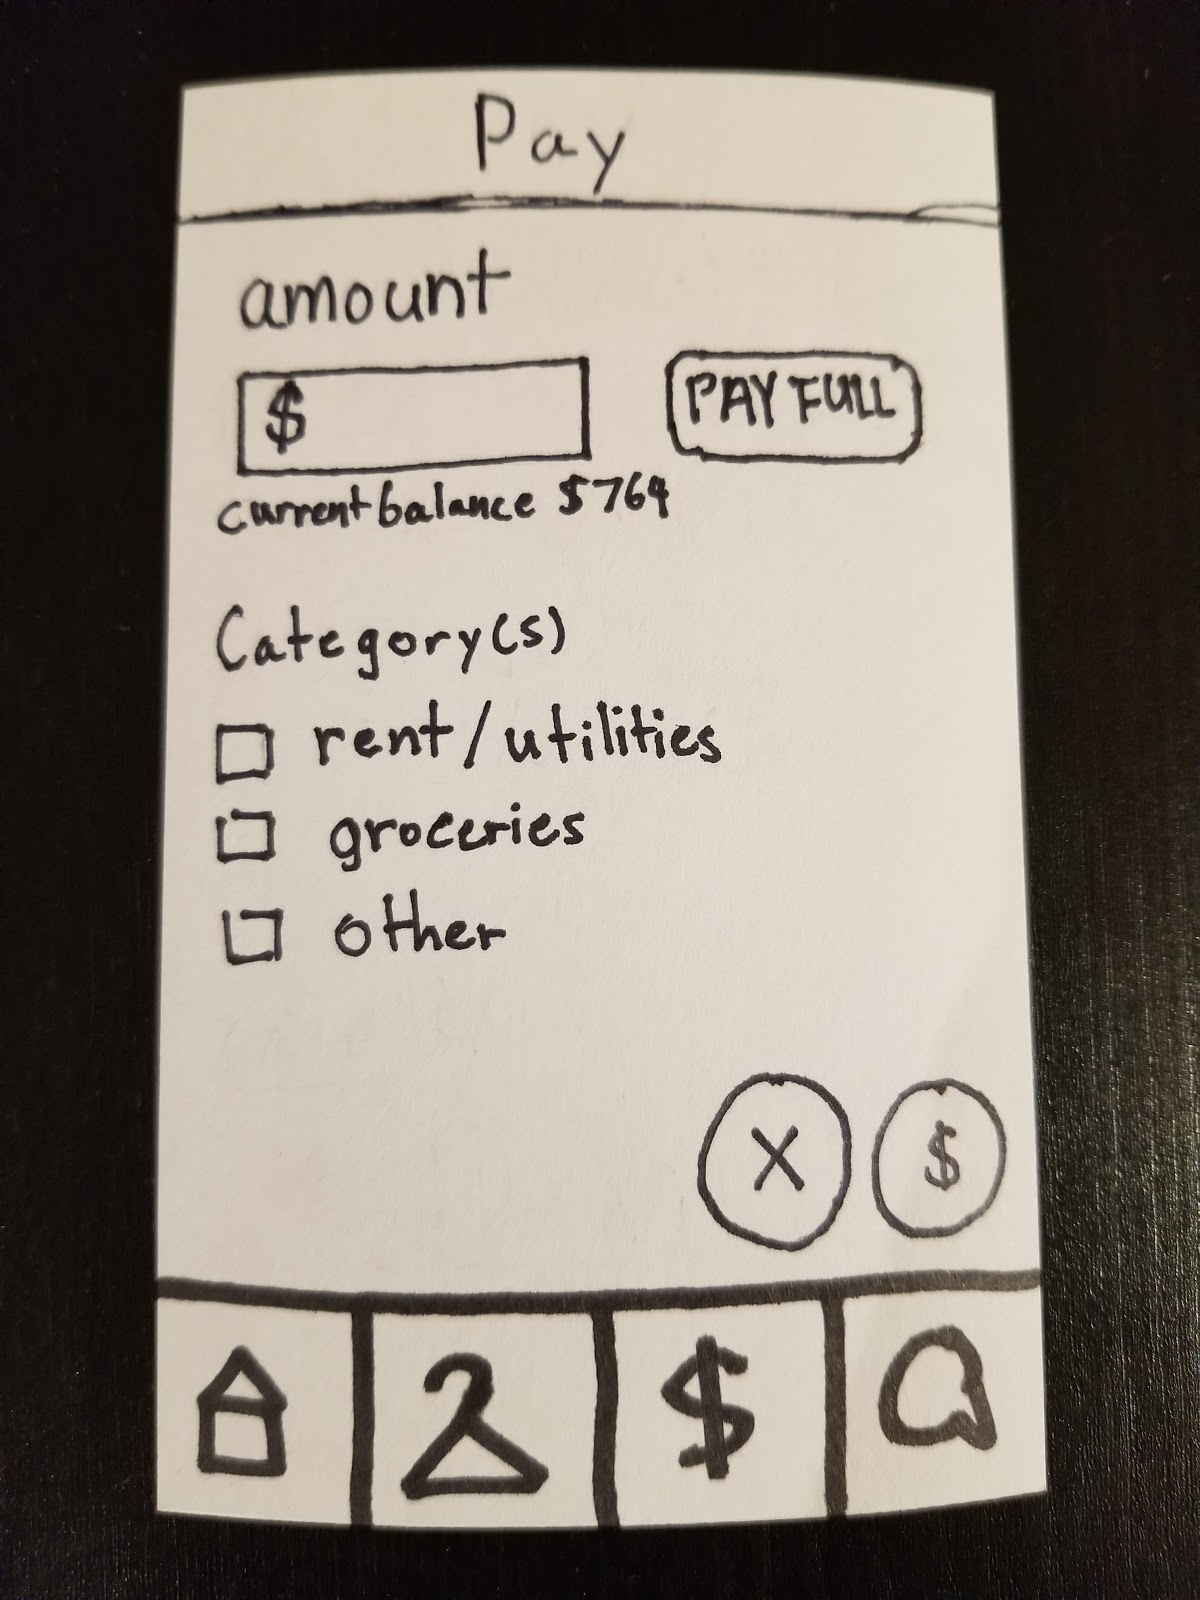 Pay
amount
$
PAY FULL
current balance $764
Category(s)
rent/utilities
groceries
other
X
$
$